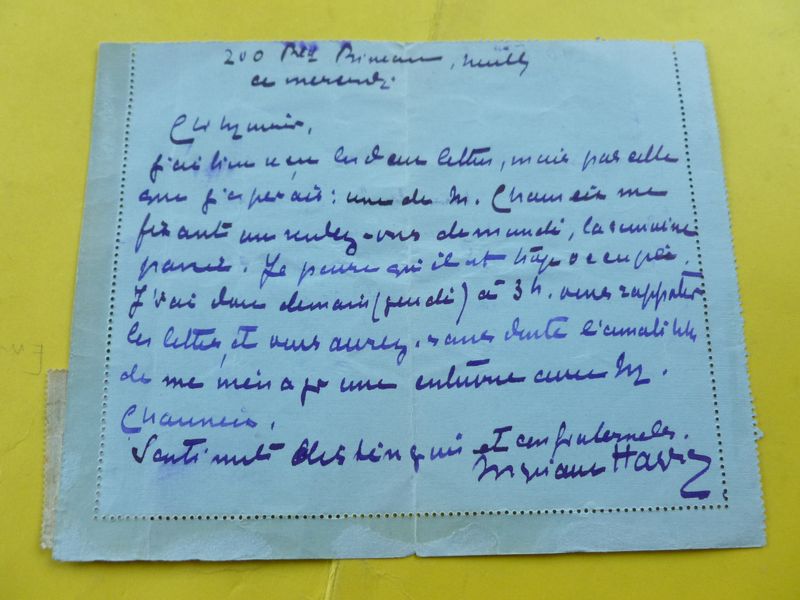 200 Bd Bineau, Neuilly
ce mercredi.
Cher Monsieur,
j'ai bien reçu les deux lettres, mais pas celle
que j'espérais : une de M. Chaumeix me
fixant un rendez-vous demandé, la semaine
passée. Je pense qu'il est trop occupé.
J'irai donc demain (jeudi) à 3 h. vous rapporter
les lettres et vous aurez, sans doute l'amabilité
de me ménager une entrevue avec M.
Chaumeix.
Sentiments distingués et confraternels.
Myriam Harry